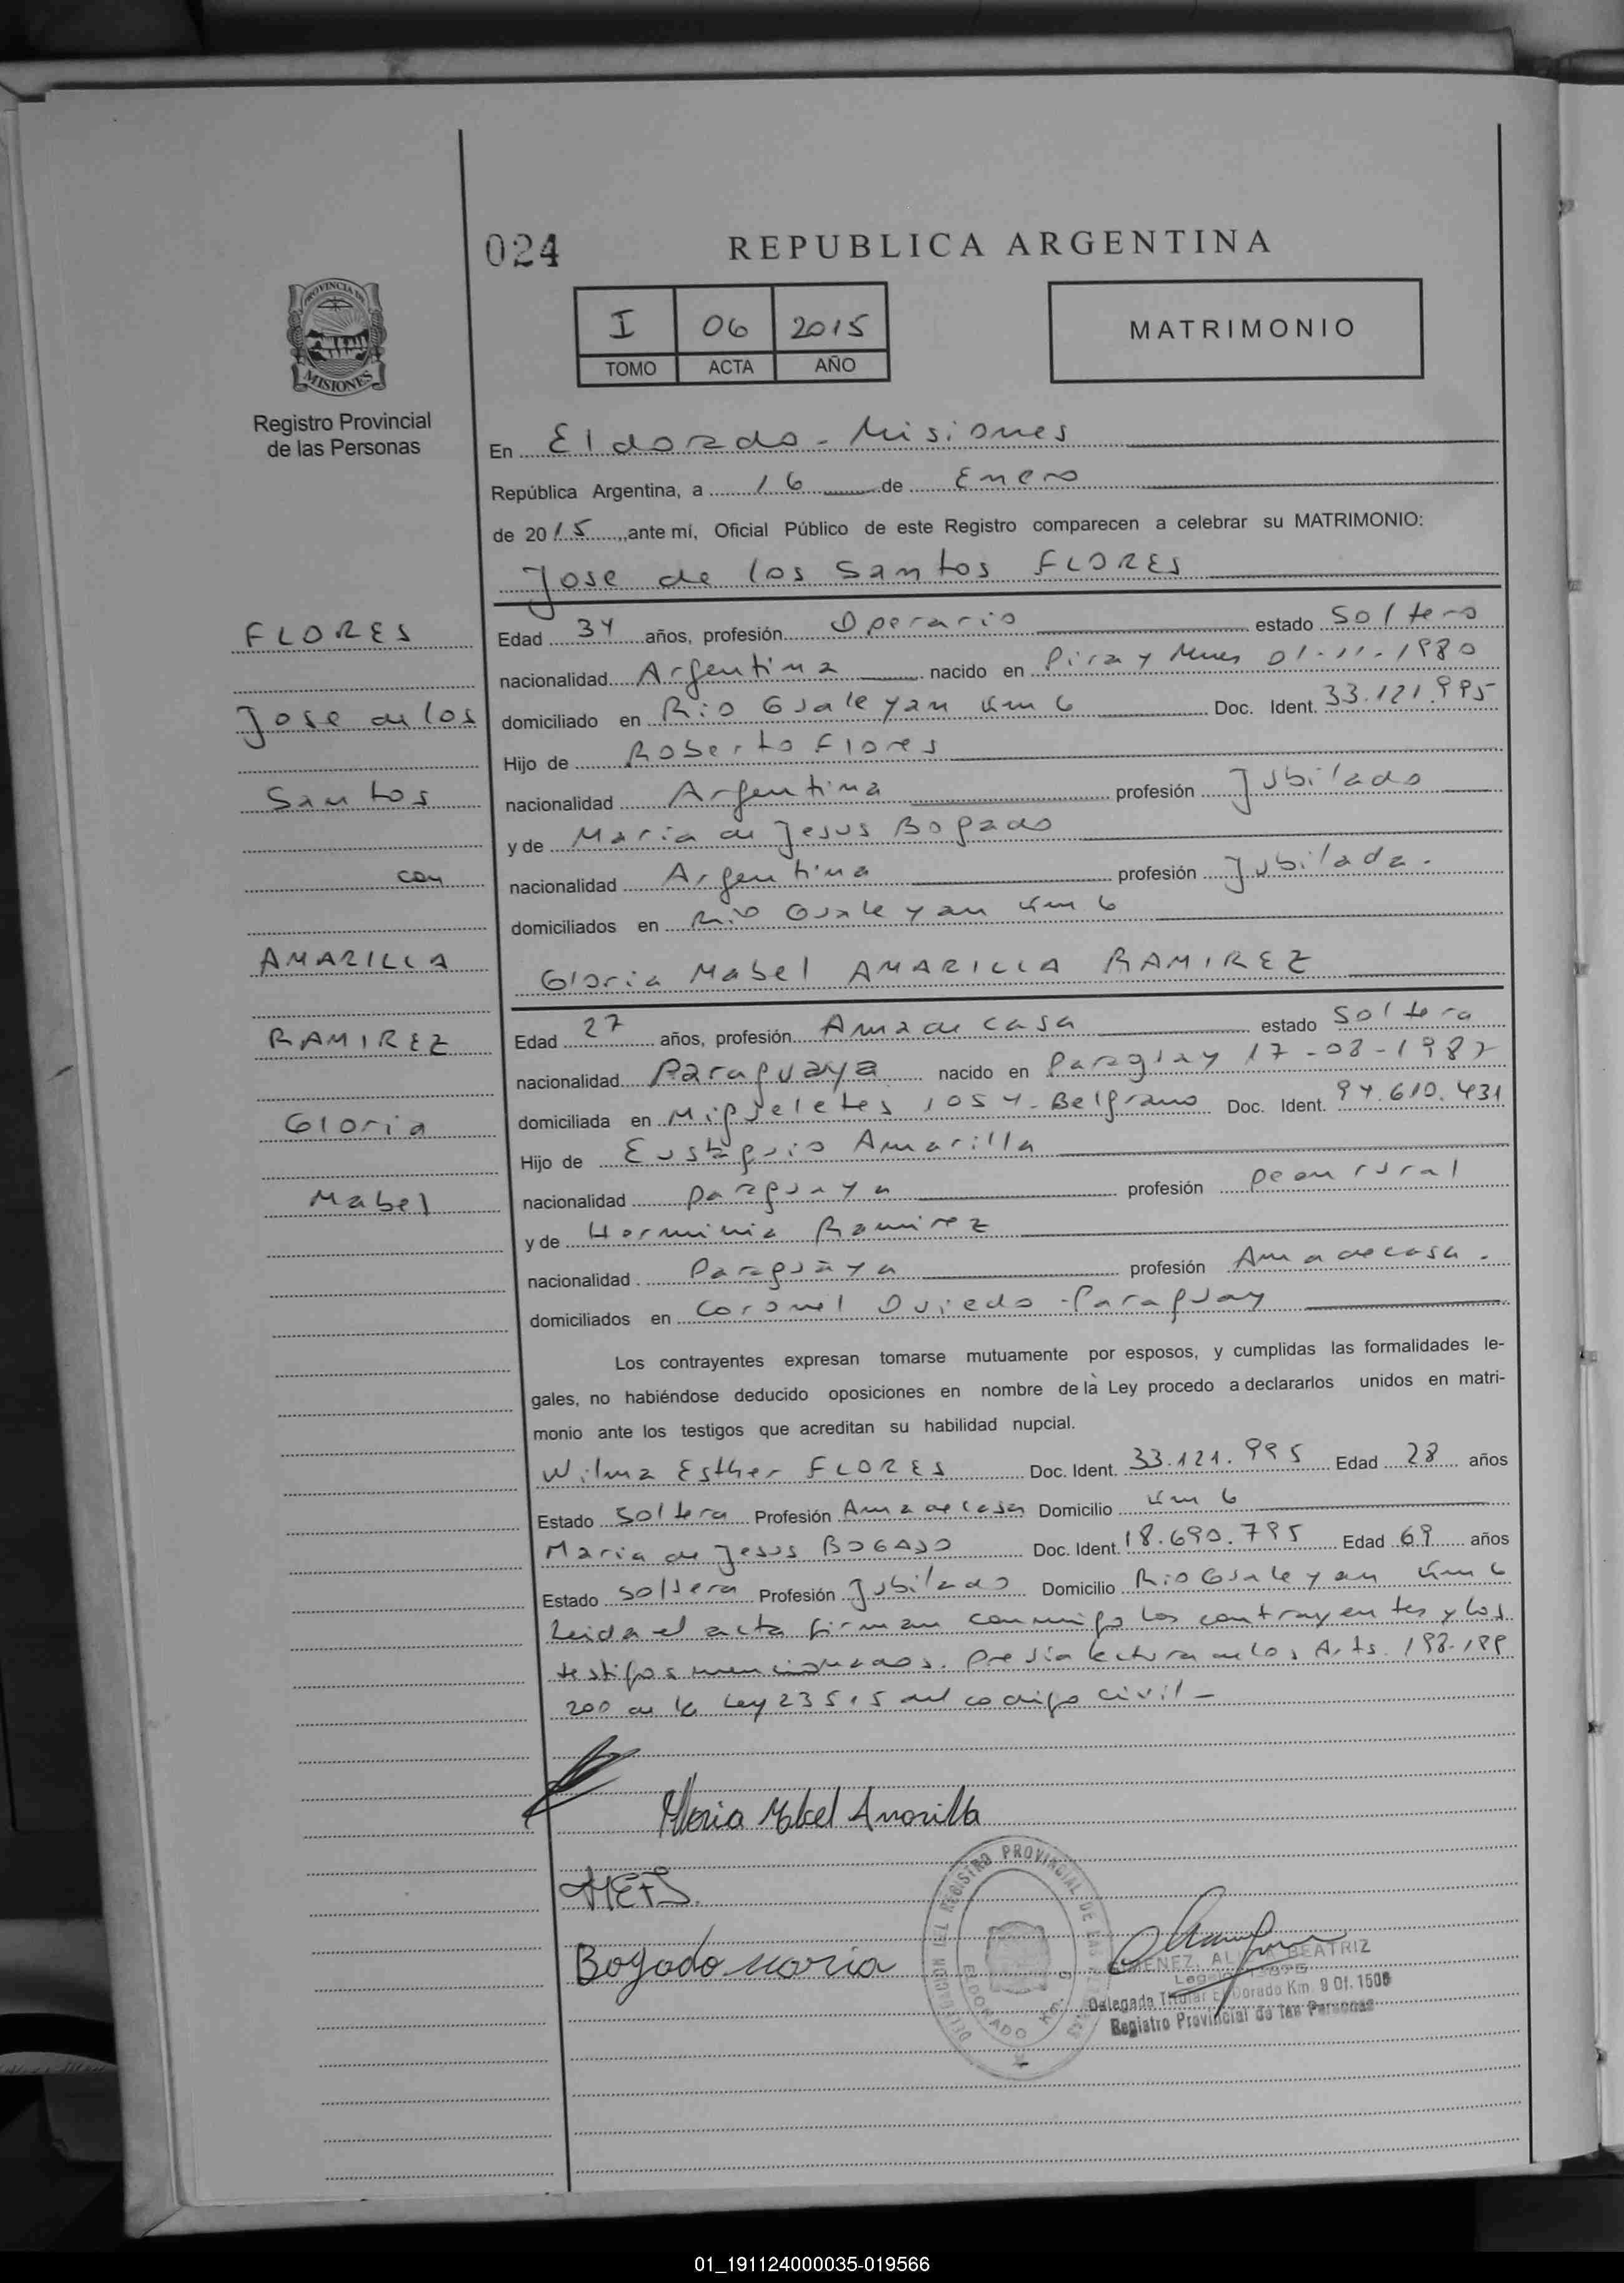 024
REPUBLICA ARGENTINA
I 06 2015
TOMO ACTA AÑO
MATRIMONIO
PROVINCIA DE
MISIONES
Registro Provincial
de las Personas
En Eldorado - Misiones
República Argentina, a 16 de Enero
de 2015, ante mí, Oficial Público de este Registro comparecen a celebrar su MATRIMONIO:
Jose de los Santos FLORES
FLORES
Jose de los
Santos
con
AMARILLA
RAMIREZ
Gloria
Mabel
Edad 34 años, profesión Operario estado Soltero
nacionalidad Argentina nacido en Piray Mnes 01-11-1980
domiciliado en Rio Gualeyan Km 6 Doc. Ident. 33.121.995
Hijo de Roberto Flores
nacionalidad Argentina profesión Jubilado
y de Maria de Jesus Bogado
nacionalidad Argentina profesión Jubilada.
domiciliados en Rio Gualeyan Km 6
Gloria Mabel AMARILLA RAMIREZ
Edad 27 años, profesión Ama de casa estado Soltera
nacionalidad Paraguaya nacido en Paraguay 17-08-1987
domiciliada en Migueletes 1054 - Belgrano Doc. Ident. 94.610.431
Hijo de Eustaquio Amarilla
nacionalidad paraguaya profesión peon rural
y de Herminia Ramirez
nacionalidad Paraguaya profesión Ama de casa.
domiciliados en Coronel Oviedo - Paraguay
Los contrayentes expresan tomarse mutuamente por esposos, y cumplidas las formalidades le-
gales, no habiéndose deducido oposiciones en nombre de la Ley procedo a declararlos unidos en matri-
monio ante los testigos que acreditan su habilidad nupcial.
Wilma Esther FLORES Doc. Ident. 33.121.995 Edad 28 años
Estado Soltera Profesión Ama de casa Domicilio Km 6
Maria de Jesus BOGADO Doc. Ident. 18.690.795 Edad 69 años
Estado Soltera Profesión Jubilado Domicilio Rio Gualeyan Km 6
Leida el acta firman conmigo los contrayentes y los
testigos mencionados. Previa lectura de los Arts. 198-199
200 de la Ley 23515 del codigo civil -
Gloria Mabel Amarilla
Bogado Maria
DELEGACION DEL REGISTRO PROVINCIAL DE LAS PERSONAS
ELDORADO KM. 9
BEATRIZ
Delegada Titular ElDorado Km. 9 Of. 1506
Registro Provincial de las Personas
01_191124000035-019566